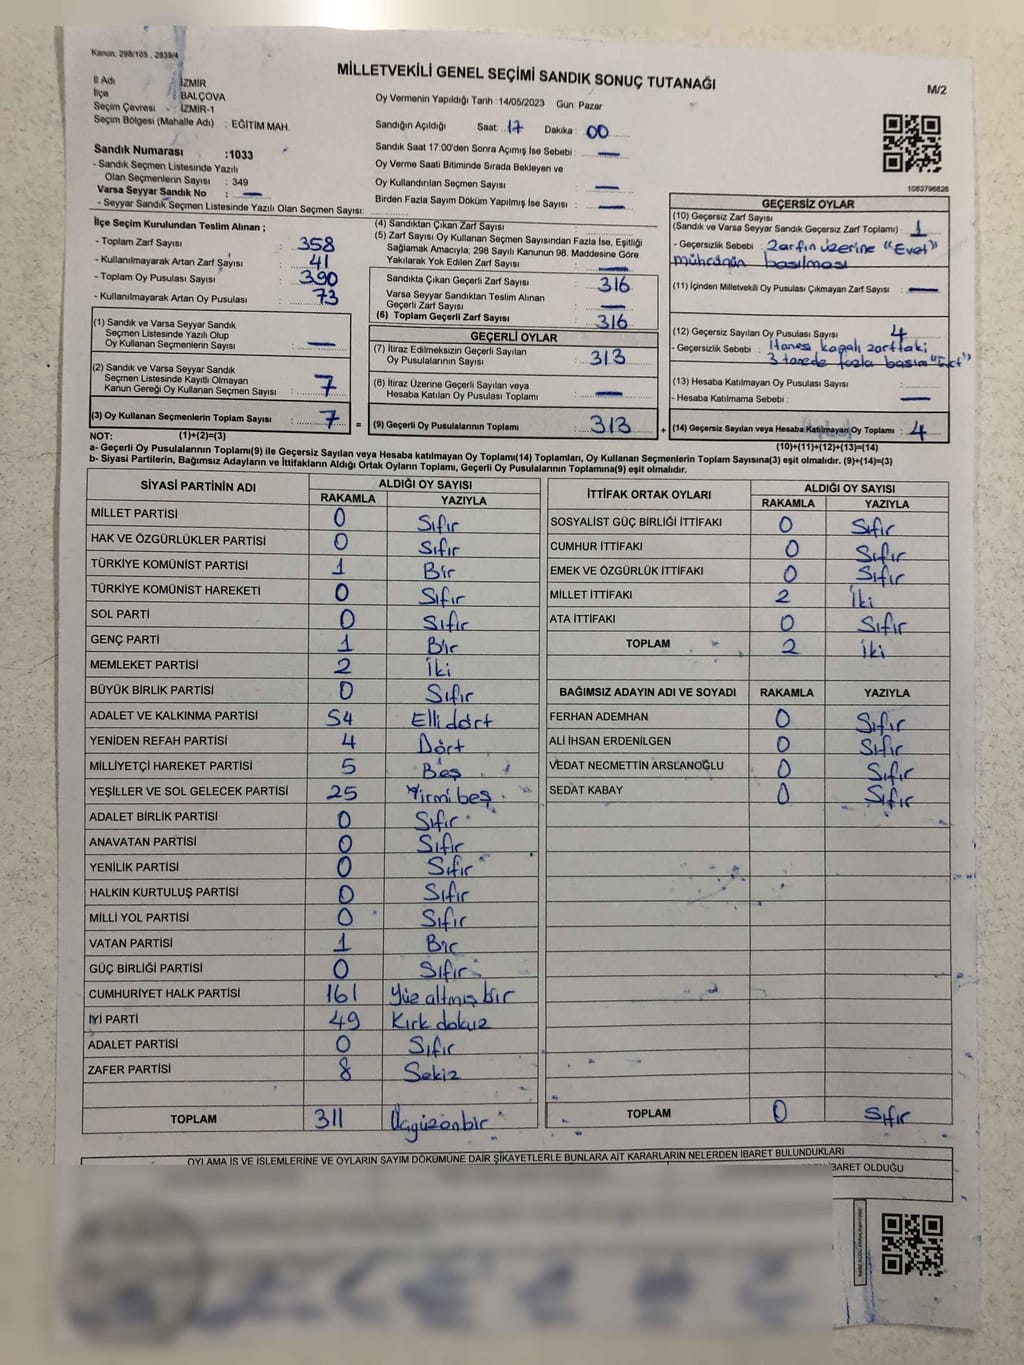 Kanun: 298/105 , 2839/4
MİLLETVEKİLİ GENEL SEÇİMİ SANDIK SONUÇ TUTANAĞI
M/2
İl Adı : İZMİR
İlçe : BALÇOVA
Seçim Çevresi : İZMİR-1
Seçim Bölgesi (Mahalle Adı) : EĞİTİM MAH.
Oy Vermenin Yapıldığı Tarih : 14/05/2023 Gün: Pazar
Sandığın Açıldığı Saat: 17 Dakika: 00
Sandık Saat 17:00'den Sonra Açımış İse Sebebi : —
Oy Verme Saati Bitiminde Sırada Bekleyen ve
Oy Kullandırılan Seçmen Sayısı : —
Birden Fazla Sayım Döküm Yapılmış İse Sayısı : —
Sandık Numarası :1033
- Sandık Seçmen Listesinde Yazılı
Olan Seçmenlerin Sayısı : 349
Varsa Seyyar Sandık No : —
- Seyyar Sandık Seçmen Listesinde Yazılı Olan Seçmen Sayısı:
1083796826
İlçe Seçim Kurulundan Teslim Alınan ;
- Toplam Zarf Sayısı : 358
- Kullanılmayarak Artan Zarf Sayısı : 41
- Toplam Oy Pusulası Sayısı : 390
- Kullanılmayarak Artan Oy Pusulası : 73
(1) Sandık ve Varsa Seyyar Sandık
Seçmen Listesinde Yazılı Olup
Oy Kullanan Seçmenlerin Sayısı : —
(2) Sandık ve Varsa Seyyar Sandık
Seçmen Listesinde Kayıtlı Olmayan
Kanun Gereği Oy Kullanan Seçmen Sayısı : 7
(3) Oy Kullanan Seçmenlerin Toplam Sayısı : 7
(4) Sandıktan Çıkan Zarf Sayısı :
(5) Zarf Sayısı Oy Kullanan Seçmen Sayısından Fazla İse, Eşitliği
Sağlamak Amacıyla, 298 Sayılı Kanunun 98. Maddesine Göre
Yakılarak Yok Edilen Zarf Sayısı : —
Sandıkta Çıkan Geçerli Zarf Sayısı : 316
Varsa Seyyar Sandıktan Teslim Alınan
Geçerli Zarf Sayısı : —
(6) Toplam Geçerli Zarf Sayısı : 316
GEÇERLİ OYLAR
(7) İtiraz Edilmeksizin Geçerli Sayılan
Oy Pusulalarının Sayısı : 313
(8) İtiraz Üzerine Geçerli Sayılan veya
Hesaba Katılan Oy Pusulası Toplamı : —
= (9) Geçerli Oy Pusulalarının Toplamı : 313 +
GEÇERSİZ OYLAR
(10) Geçersiz Zarf Sayısı
(Sandık ve Varsa Seyyar Sandık Geçersiz Zarf Toplamı) : 1
- Geçersizlik Sebebi : Zarfın üzerine "Evet"
mührünün basılması
(11) İçinden Milletvekili Oy Pusulası Çıkmayan Zarf Sayısı : —
(12) Geçersiz Sayılan Oy Pusulası Sayısı : 4
- Geçersizlik Sebebi : 1 tanesi kapalı zarftaki
3 tanede fazla basım "Evet"
(13) Hesaba Katılmayan Oy Pusulası Sayısı :
- Hesaba Katılmama Sebebi : —
(14) Geçersiz Sayılan veya Hesaba Katılmayan Oy Toplamı : 4
NOT: (1)+(2)=(3)
(10)+(11)+(12)+(13)=(14)
a- Geçerli Oy Pusulalarının Toplamı(9) ile Geçersiz Sayılan veya Hesaba katılmayan Oy Toplamı(14) Toplamları, Oy Kullanan Seçmenlerin Toplam Sayısına(3) eşit olmalıdır. (9)+(14)=(3)
b- Siyasi Partilerin, Bağımsız Adayların ve İttifakların Aldığı Ortak Oyların Toplamı, Geçerli Oy Pusulalarının Toplamına(9) eşit olmalıdır.
SİYASİ PARTİNİN ADI ALDIĞI OY SAYISI
RAKAMLA YAZIYLA
MİLLET PARTİSİ 0 Sıfır
HAK VE ÖZGÜRLÜKLER PARTİSİ 0 Sıfır
TÜRKİYE KOMÜNİST PARTİSİ 1 Bir
TÜRKİYE KOMÜNİST HAREKETİ 0 Sıfır
SOL PARTİ 0 Sıfır
GENÇ PARTİ 1 Bir
MEMLEKET PARTİSİ 2 İki
BÜYÜK BİRLİK PARTİSİ 0 Sıfır
ADALET VE KALKINMA PARTİSİ 54 Elli dört
YENİDEN REFAH PARTİSİ 4 Dört
MİLLİYETÇİ HAREKET PARTİSİ 5 Beş
YEŞİLLER VE SOL GELECEK PARTİSİ 25 Yirmi beş
ADALET BİRLİK PARTİSİ 0 Sıfır
ANAVATAN PARTİSİ 0 Sıfır
YENİLİK PARTİSİ 0 Sıfır
HALKIN KURTULUŞ PARTİSİ 0 Sıfır
MİLLİ YOL PARTİSİ 0 Sıfır
VATAN PARTİSİ 1 Bir
GÜÇ BİRLİĞİ PARTİSİ 0 Sıfır
CUMHURİYET HALK PARTİSİ 161 Yüz altmış bir
İYİ PARTİ 49 Kırk dokuz
ADALET PARTİSİ 0 Sıfır
ZAFER PARTİSİ 8 Sekiz
TOPLAM 311 Üçyüzonbir
İTTİFAK ORTAK OYLARI ALDIĞI OY SAYISI
RAKAMLA YAZIYLA
SOSYALİST GÜÇ BİRLİĞİ İTTİFAKI 0 Sıfır
CUMHUR İTTİFAKI 0 Sıfır
EMEK VE ÖZGÜRLÜK İTTİFAKI 0 Sıfır
MİLLET İTTİFAKI 2 İki
ATA İTTİFAKI 0 Sıfır
TOPLAM 2 İki
BAĞIMSIZ ADAYIN ADI VE SOYADI RAKAMLA YAZIYLA
FERHAN ADEMHAN 0 Sıfır
ALİ İHSAN ERDENİLGEN 0 Sıfır
VEDAT NECMETTİN ARSLANOĞLU 0 Sıfır
SEDAT KABAY 0 Sıfır
TOPLAM 0 Sıfır
OYLAMA İŞ VE İŞLEMLERİNE VE OYLARIN SAYIM DÖKÜMÜNE DAİR ŞİKAYETLERLE BUNLARA AİT KARARLARIN NELERDEN İBARET BULUNDUKLARI
İBARET OLDUĞU